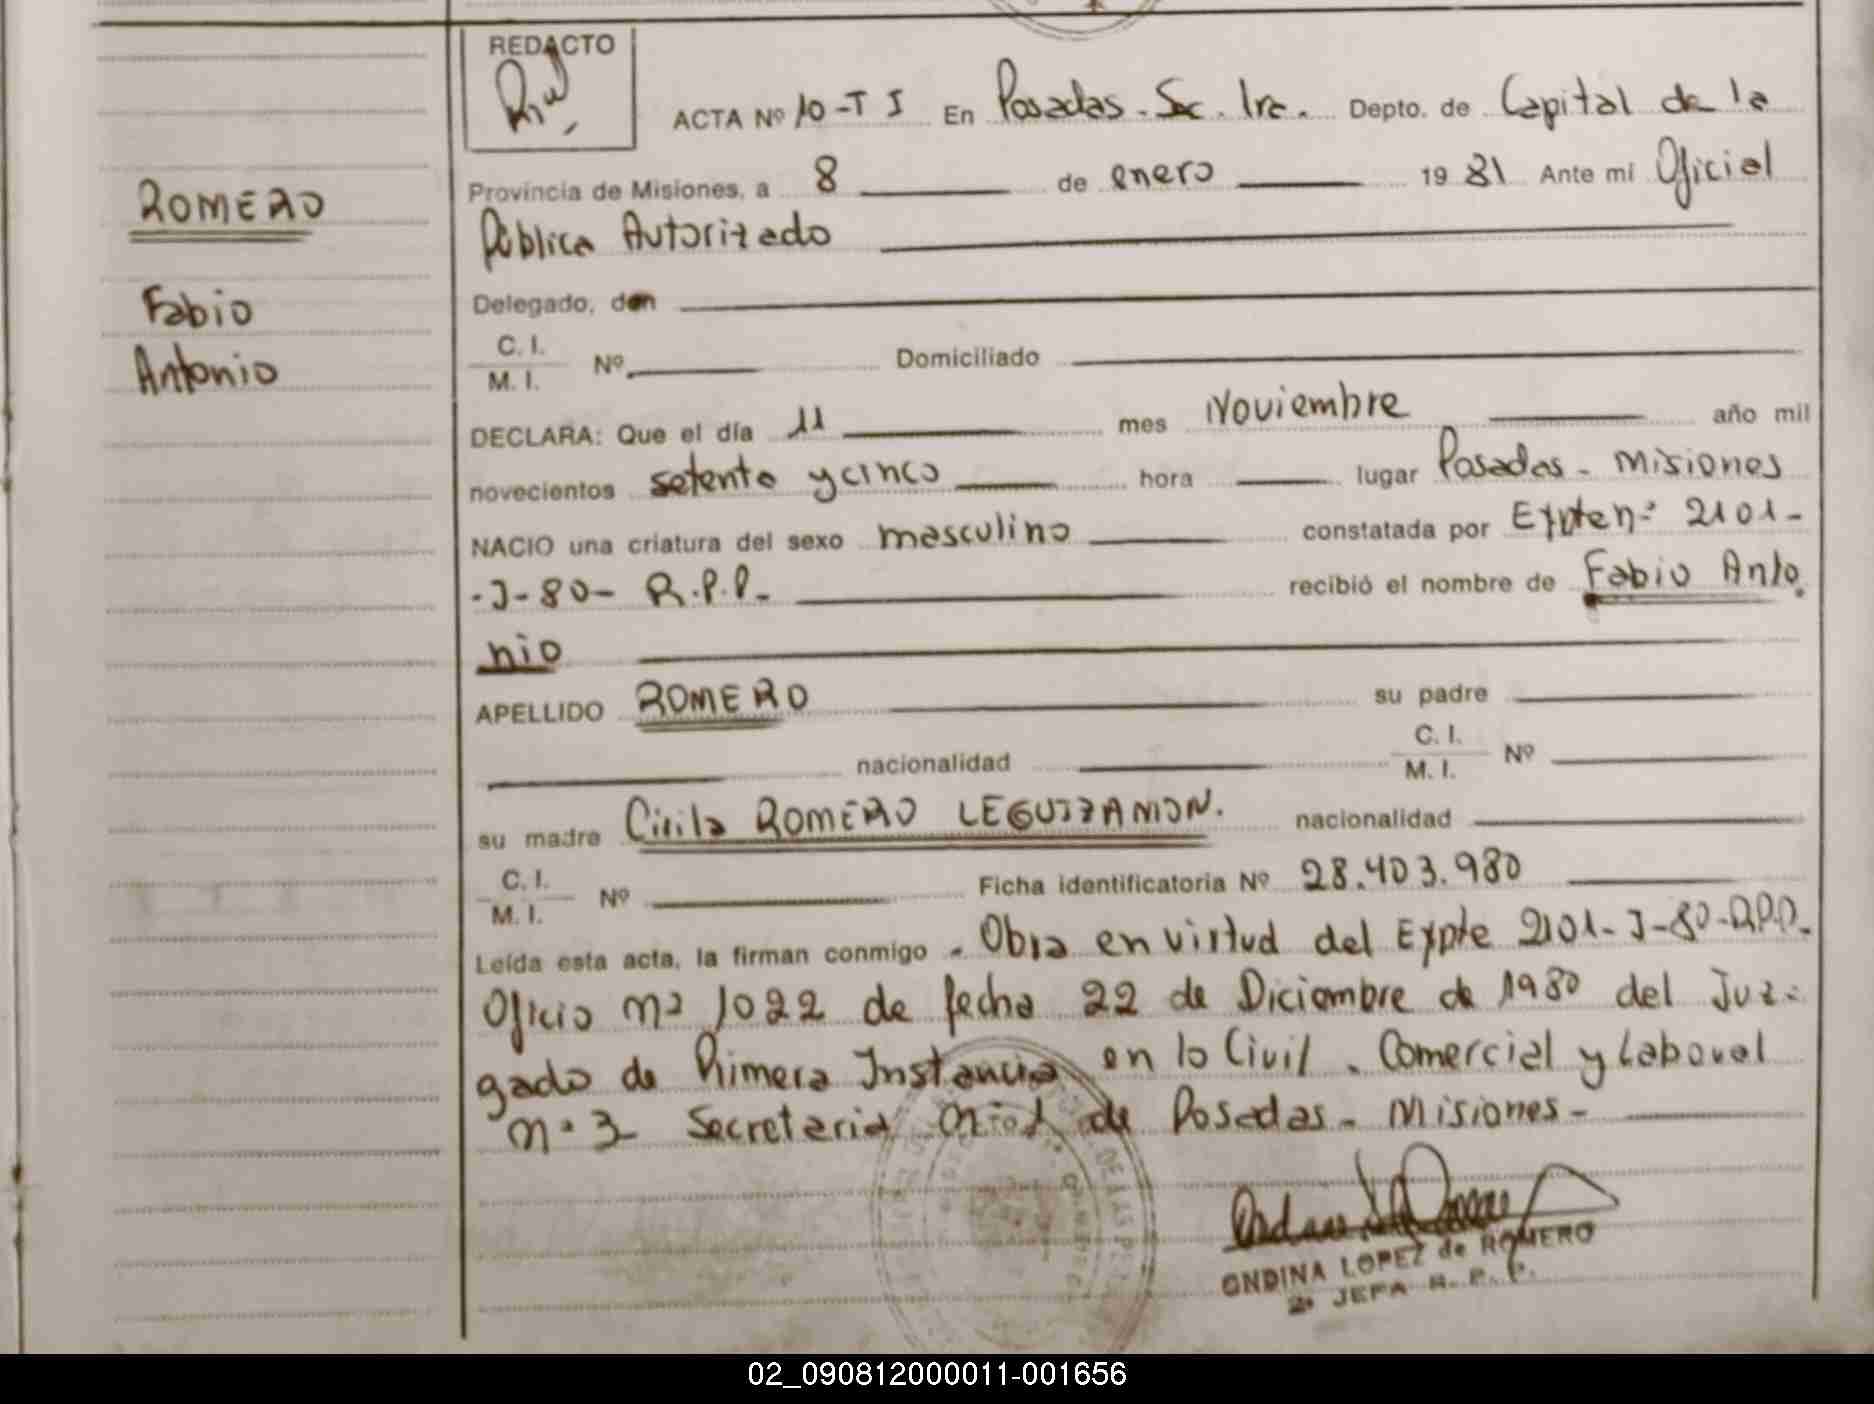 REDACTO
ACTA Nº 10-T I En Posadas - Sec. 1ra. Depto. de Capital de la
Provincia de Misiones, a 8 de enero 1981 Ante mí Oficial
Público Autorizado
Delegado, don
C. I.
M. I. Nº Domiciliado
DECLARA: Que el día 11 mes Noviembre año mil
novecientos setenta y cinco hora lugar Posadas - Misiones
NACIO una criatura del sexo masculino constatada por Expte nº 2101-
-J-80- R.P.P.- recibió el nombre de Fabio Anto
nio
APELLIDO ROMERO su padre
nacionalidad C. I.
M. I. Nº
su madre Cirila ROMERO LEGUIZAMON. nacionalidad
C. I.
M. I. Nº Ficha identificatoria Nº 28.403.980
Leída esta acta, la firman conmigo - Obra en virtud del Expte 2101-J-80-R.P.P.-
Oficio nº 1022 de fecha 22 de Diciembre de 1980 del Juz-
gado de Primera Instancia en lo Civil. Comercial y Laboral
nº 3 Secretaria de Posadas - Misiones -
ONDINA LOPEZ de ROMERO
2ª JEFA R. P. P.
ROMERO
Fabio
Antonio
02_090812000011-001656